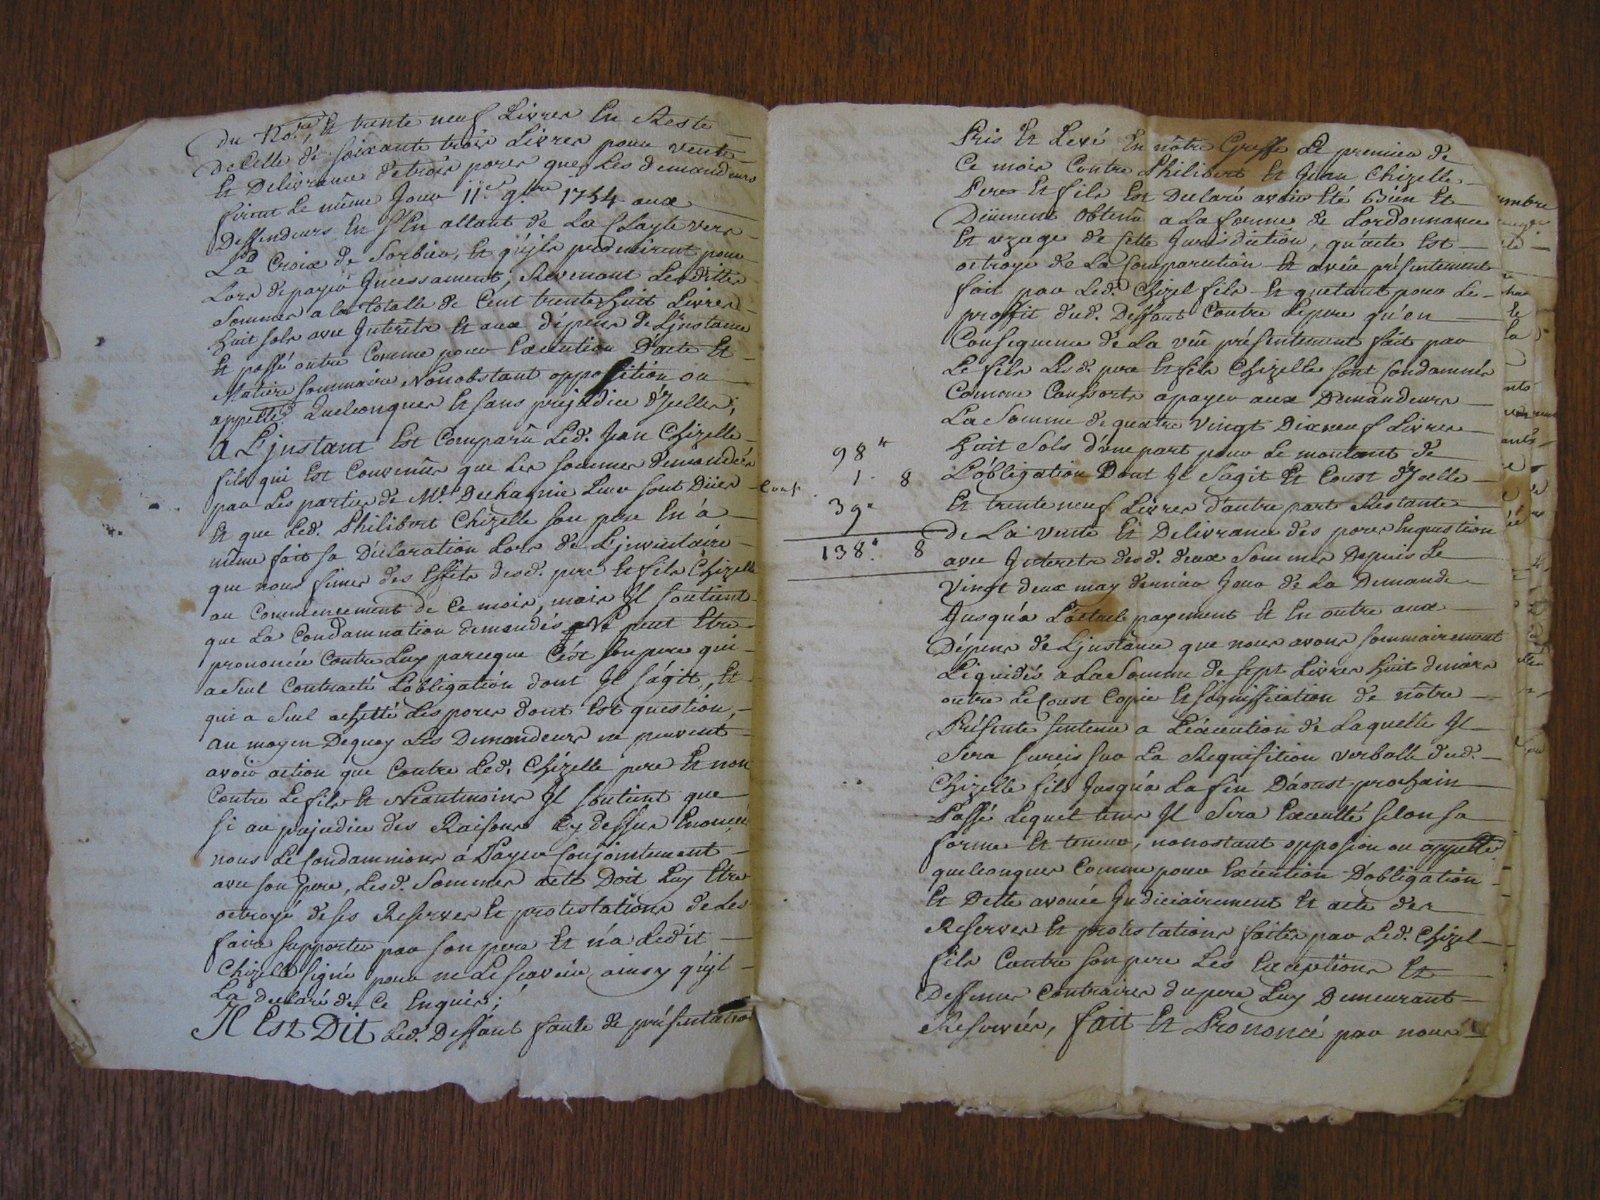 du No.re, Et trente neuf Livres En Reste
de Celle de soixante trois Livres pour vente
Et Delivrance de trois porcs que Les demandeurs
firent Le même Jour 11e 9bre 1754 aux
Deffendeurs En S'En allant de La Clayte vers
La Croix de Sorbier, Et qu'jls promirent pour
Lors de payer Jncessament; Revenant Lesdittes
Sommes a la totalle de Cent trente huit Livres
huit sols avec Jnterêts Et aux dépens de Ljnstance
Et passé outre Comme pour Execution D'acte Et
Matiere sommaire Nonobstant opposition ou
appell.on Quelconques Et sans prejudice d'Jcelles;
A Ljnstant Est Comparû Led. Jean Chizelle
fils qui Est Convenûe que Les sommes demandées
par Les parties de Me. Dechagnie Leur sont Dües
Et que Led. Philibert Chizelle son pere En a
même fait sa Déclaration Lors de Ljnventaire
que nous fimes des Effêts desd. pere Et fils Chizelle
au Commencement de Ce mois, mais Jl soutient
que La Condamnation demandée Ne peut Etre
prononcée Contre Luy parceque C'est son pere qui
a seul Contracté L'obligation dont Jl s'agit, Et
qui a seul achetté Les porcs dont Est question,
au moyen Dequoy Les Demandeurs ne peuvent
avoir action que Contre Led. Chizelle pere Et non
Contre Le fils Et Neantmoins Jl soutient que
si au prejudice des Raisons Cy dessus Enoncées
nous Le Condamnions à Payer Conjointement
avec son pere, Lesd. Sommes acte Doit Luy Etre
octroyé de ses Reserves Et protestations de Les
faire supporter par son pere Et n'a Ledit
Chizelle signé pour ne Le sçavoir ainsy qu'jl
La declaré de Ce Enquis;
Jl Est Dit Led. Deffaut faute de présentation
Pris Et Levé En nôtre Greffe Le premier de
Ce mois Contre Philibert Et Jean Chizelle
Peres Et fils Est Declaré avoir Eté Bien Et
Düement Obtenû a La forme de Lordonnance
Et vzage de Cette Jurisdiction, qu'acte Est
octroyé de La Comparution Et aveu présentement
fait par Led. Chizel fils Et quetant pour Le
proffit dud. Deffaut Contre Le pere qu'en
Consequence de La vüe présentement fait par
Le fils Lesd. pere Et fils Chizelle sont Condamnés
Comme Consorts a payer aux Demandeurs
La Somme de quatre Vingt Dixneuf Livres
huit Sols d'une part pour Le montant de
L'obligation Dont Jl Sagit Et Coust d'Jcelle
Et trente neuf Livres d'autre part Restante
de La vente Et Delivrance des porcs Enquestion
avec Jnterets desd. deux Sommes Depuis Le
Vingt deux may dernier Jour de La Demande
Jusqu'a L'actuel payement Et En outre aux
Dépens de Ljnstance que nous avons sommairement
Liquidés a La Somme de sept Livres huit deniers
outre Le Coust Copie Et signiffication de nôtre
Présente sentence a L'éxecution de Laquelle Jl
Sera surcis sur La Requisition verballe dud.
Chizelle fils Jusqu'a La fin D'aoust prochain
Passé Lequel tems Jl Sera Executté selon sa
forme Et teneur, nonostant opposion ou appelle
quelconques Comme pour Exécution D'obligation
Et Dette avouée Judiciairement Et acte des
Reserves Et protestations faites par Led. Chizel
fils Contre son pere Les Exceptions Et
Deffenses Contraires du pere Luy Demeurant
Reservées, fait Et Prononcé par nous
98lt
Coust 1. 8
39lt
138lt. 8